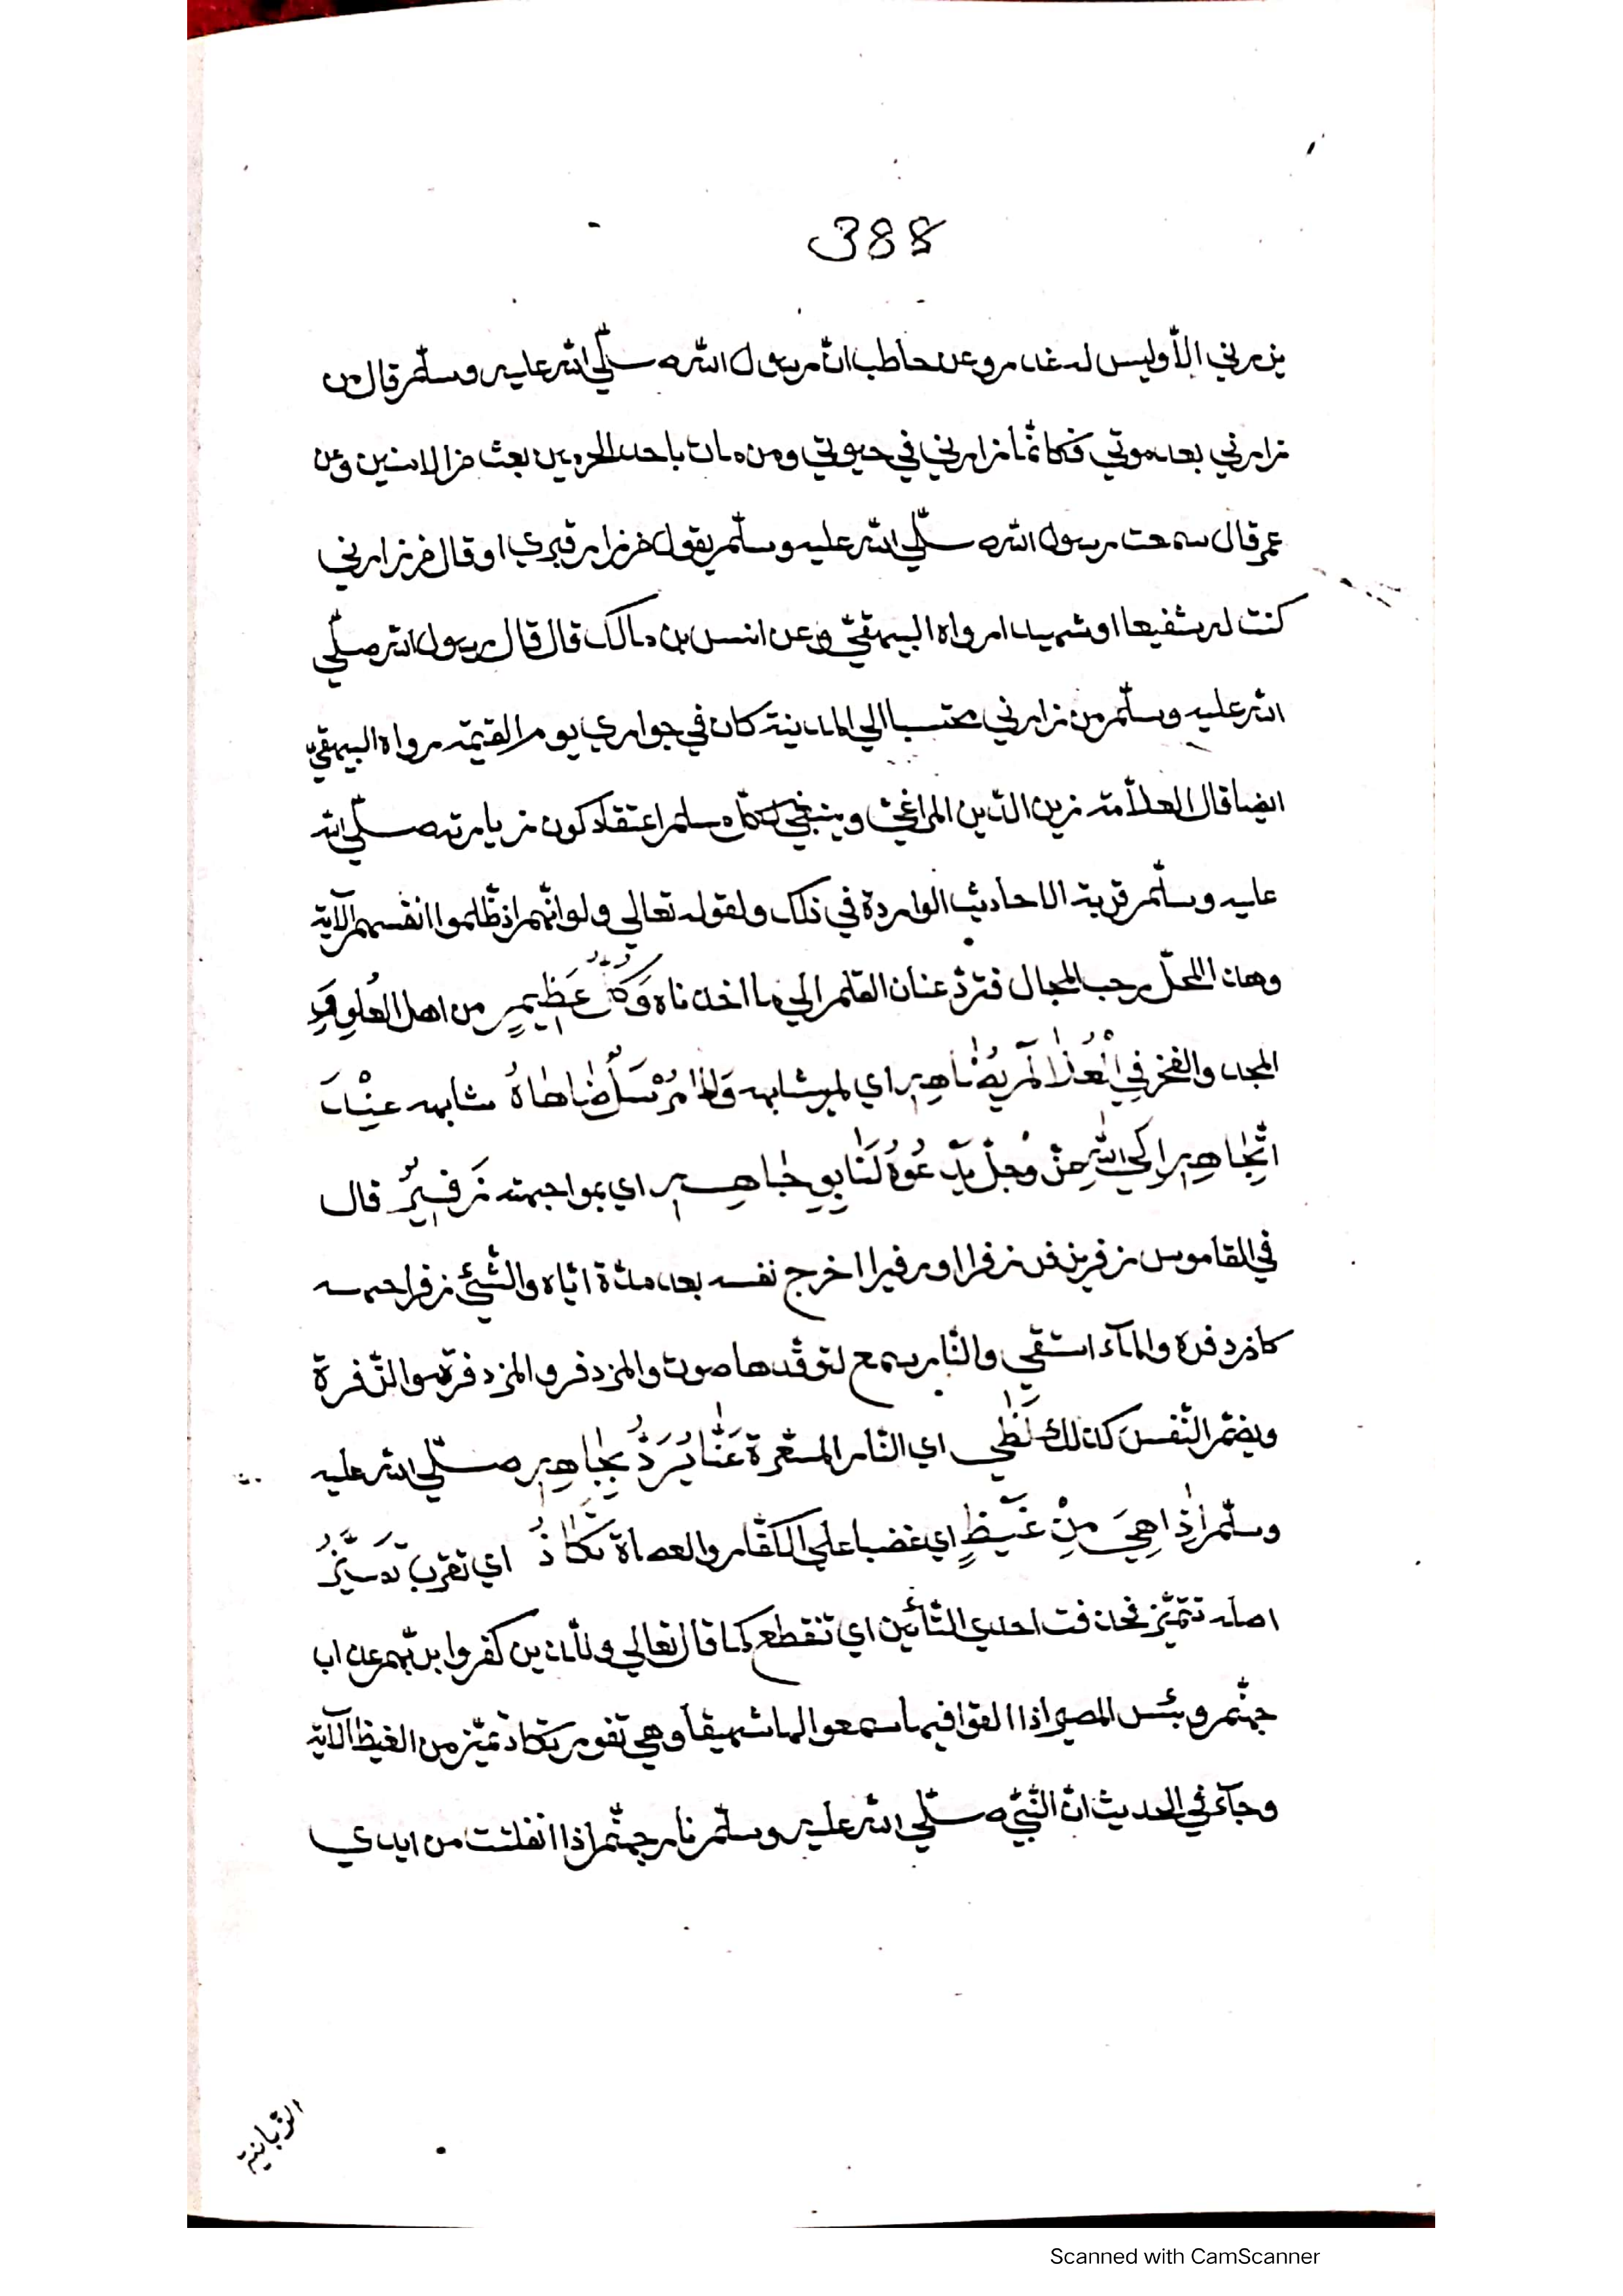 388
يزرني الّا وليس له عذر وعن حاطب انّ رسول الله صلّي الله عليه وسلّم قال من
زارني بعد موتي فكانّما زارني في حيوتي ومن مات باحد الحرمين بعث من الامنين وعن
عمر قال سمعت رسول الله صلّي الله عليه وسلّم يقول من زار قبري او قال من زارني
كنت له شفيعا او شهيدا رواه البيهقيّ وعن انس بن مالك قال قال رسول الله صلّي
الله عليه وسلّم من زارني محتسبا الي المدينة كان في جواري يوم القيمة رواه البيهقيّ
ايضا قال العلاّمة زين الدّين المراغيّ وينبغي لكلّ مسلم اعتقاد كون زيارته صلّي الله
عليه وسلّم قربة الاحاديث الواردة في ذلك ولقوله تعالي ولو انّهم اذ ظّلموا انفسهم الآية
وهذا المحلّ رحب المجال فتردّ عنان القلم الي ما اخذناه وَكَمْ عَظِيمٍ من اهل العُلو و
المجد والفخر فِي الْعُذَا لَمْ يُضَاهِهِ اي لم يشابهه وَلَا مُرْسَلٌ ضَاهَاهُ شابهه عِنْدَ
اتِّجَاهِهِ الَي اللهِ عزّ وجلّ يَدْعُوهُ لَنَا بِوِجَاهِهِ اي بمواجهته زَفِيرُ قال
في القاموس زفر يزفر زفرا وزفيرا اخرج نفسه بعد مدّة ايّاه والشّيئ زفرا حمله
كازدفره والمآء استقي والنّار سمع لتوقّدها صوت والمزدفر والمزدفرة والزّفرة
ويضمّ النّفس كذلك لَظَي اي النّار المسعّرة عَنَّا يُرَدُّ بِجَاهِهِ صلّي الله عليه
وسلّم اِذَا هِيَ مِنْ غَيْظٍ اي غضبا علي الكفّار والعصاة تَكَادُ اي تقرب تَمَيَّزُ
اصله تتميّز فحذفت احدي التّائين اي تنقطع كما قال تعالي وللّذين كفروا بربّهم عذاب
جهنّم وبئس المصير اذا القوا فيها سمعوا لها شهيقا وهي تفور تكاد تميّز من الغيظ الآية
وجآء في الحديث انّ النّبيّ صلّي الله عليه وسلّم نار جهنّم اذا انفلتت من ايدي
الزّبانية
Scanned with CamScanner